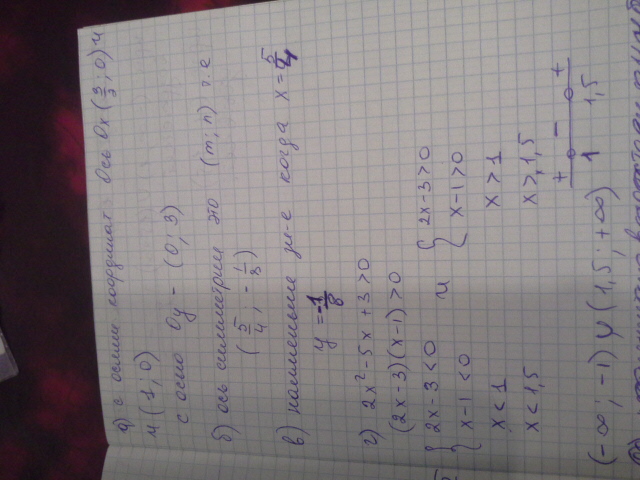 а) с осями координат Ось Ox (3/2; 0) и
и (1; 0)
с осью Oy - (0; 3)
б) ось симметрии это (m; n) т.е
(5/4; -1/8)
в) наименьшее зн-е когда x = 5/4
y = -1/8
г) 2x² - 5x + 3 > 0
(2x - 3)(x - 1) > 0
{ 2x - 3 < 0 и { 2x - 3 > 0
{ x - 1 < 0 { x - 1 > 0
x < 1 x > 1
x < 1,5 x > 1,5
+ - +
1 1,5
(-∞; -1) ∪ (1,5; +∞)